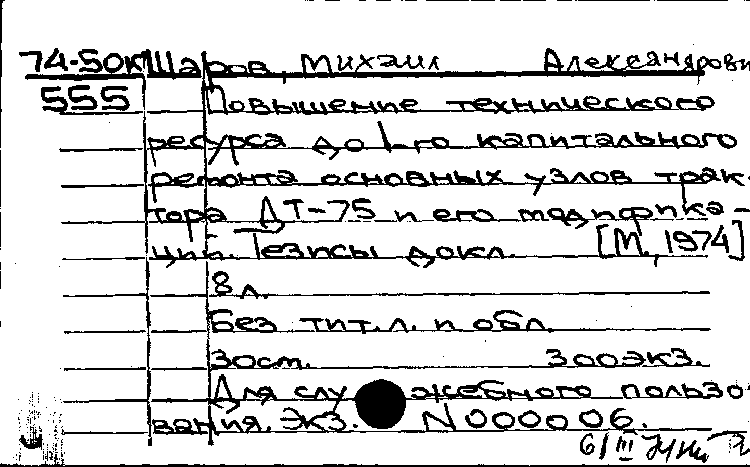 74-50к Шаров, Михаил Александрови
555 Повышение технического
ресурса до 1-го капитального
ремонта основных узлов трак-
тора ДТ-75 и его модифика-
ций. Тезисы докл. [М., 1974]
8 л.
Без тит. л. и обл.
30 см. 300 экз.
Для служебного пользо
вания. Экз. N 000006.
6/III